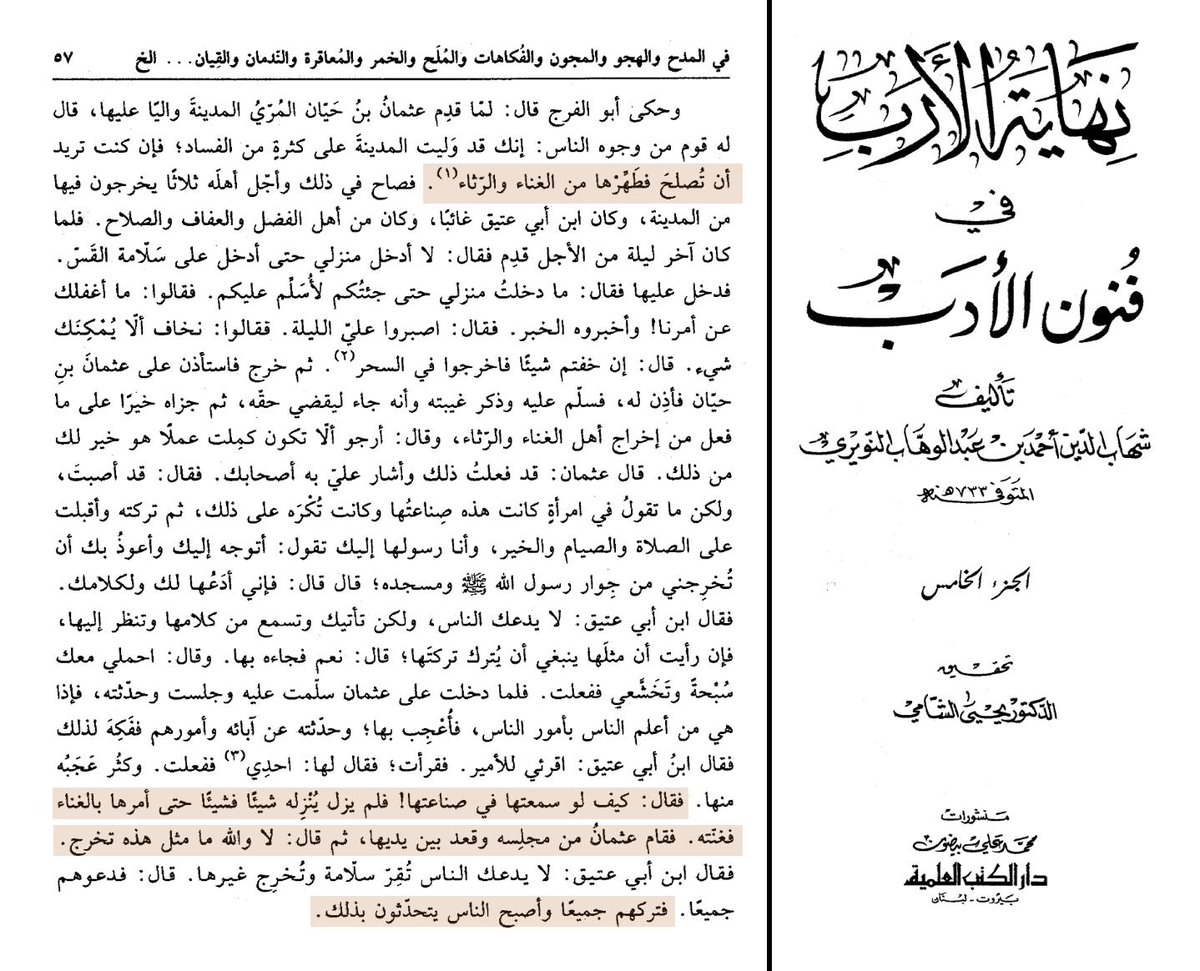 في المدح والهجو والمجون والفُكاهات والمُلَح والخمر والمُعاقرة والنَدمان والقِيان... الخ ٥٧
وحكى أبو الفرج قال: لمّا قدِم عثمانُ بنُ حَيّان المُرّيُ المدينةَ واليّا عليها، قال
له قوم من وجوه الناس: إنك قد وَليت المدينةَ على كثرةٍ من الفساد؛ فإن كنت تريد
أن تُصلحَ فطَهِّرْها من الغناء والرّثاء(١). فصاح في ذلك وأجّل أهلَه ثلاثًا يخرجون فيها
من المدينة، وكان ابن أبي عتيق غائبًا، وكان من أهل الفضل والعفاف والصلاح. فلما
كان آخر ليلة من الأجل قدِم فقال: لا أدخل منزلي حتى أدخل على سَلّامة القَسّ.
فدخل عليها فقال: ما دخلتُ منزلي حتى جئتُكم لأُسَلِّم عليكم. فقالوا: ما أغفلك
عن أمرنا! وأخبروه الخبر. فقال: اصبروا عليّ الليلة. فقالوا: نخاف ألّا يُمْكِنَك
شيء. قال: إن خفتم شيئًا فاخرجوا في السحر(٢). ثم خرج فاستأذن على عثمانَ بنِ
حيّان فأذِن له، فسلّم عليه وذكر غيبته وأنه جاء ليقضي حقّه، ثم جزاه خيرًا على ما
فعل من إخراج أهل الغناء والرّثاء، وقال: أرجو ألّا تكون كمِلت عملًا هو خير لك
من ذلك. قال عثمان: قد فعلتُ ذلك وأشار عليّ به أصحابك. فقال: قد أصبتَ،
ولكن ما تقولُ في امرأةٍ كانت هذه صِناعتُها وكانت تُكْرَه على ذلك، ثم تركته وأقبلت
على الصلاة والصيام والخير، وأنا رسولها إليك تقول: أتوجه إليك وأعوذُ بك أن
تُخرِجني من جِوار رسول الله ﷺ ومسجده؛ قال قال: فإني أدَعُها لك ولكلامك.
فقال ابن أبي عتيق: لا يدعك الناس، ولكن تأتيك وتسمع من كلامها وتنظر إليها،
فإن رأيت أن مثلَها ينبغي أن يُترك تركتَها؛ قال: نعم فجاءه بها. وقال: احملي معك
سُبْحةً وتَخَشَّعي ففعلت. فلما دخلت على عثمان سلّمت عليه وجلست وحدّثته، فإذا
هي من أعلم الناس بأمور الناس، فأُعْجِب بها؛ وحدّثته عن آبائه وأمورهم ففَكِهَ لذلك
فقال ابنُ أبي عتيق: اقرئي للأمير. فقرأت؛ فقال لها: احدِي(٣) ففعلت. وكثُر عَجَبُه
منها. فقال: كيف لو سمعتها في صناعتها! فلم يزل يُنْزِله شيئًا فشيئًا حتى أمرها بالغناء
فغنّته. فقام عثمانُ من مجلِسه وقعد بين يديها، ثم قال: لا والله ما مثل هذه تخرج.
فقال ابن أبي عتيق: لا يدعك الناس تُقِرّ سلّامة وتُخرِج غيرها. قال: فدعوهم
جميعًا. فتركهم جميعًا وأصبح الناس يتحدّثون بذلك.
نهاية الأرب
في
فنون الأدب
تأليف
شهاب الدين أحمد بن عبد الوهاب النويري
المتوفى ٧٣٣ هـ
الجزء الخامس
تحقيق
الدكتور يحيى الشامي
منشورات
محمد علي بيضون
دار الكتب العلمية
بيروت - لبنان